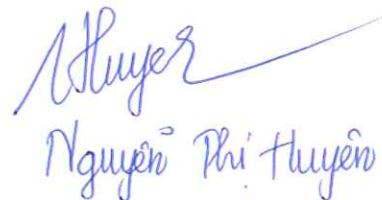 Huyen
Nguyễn Phi Huyến